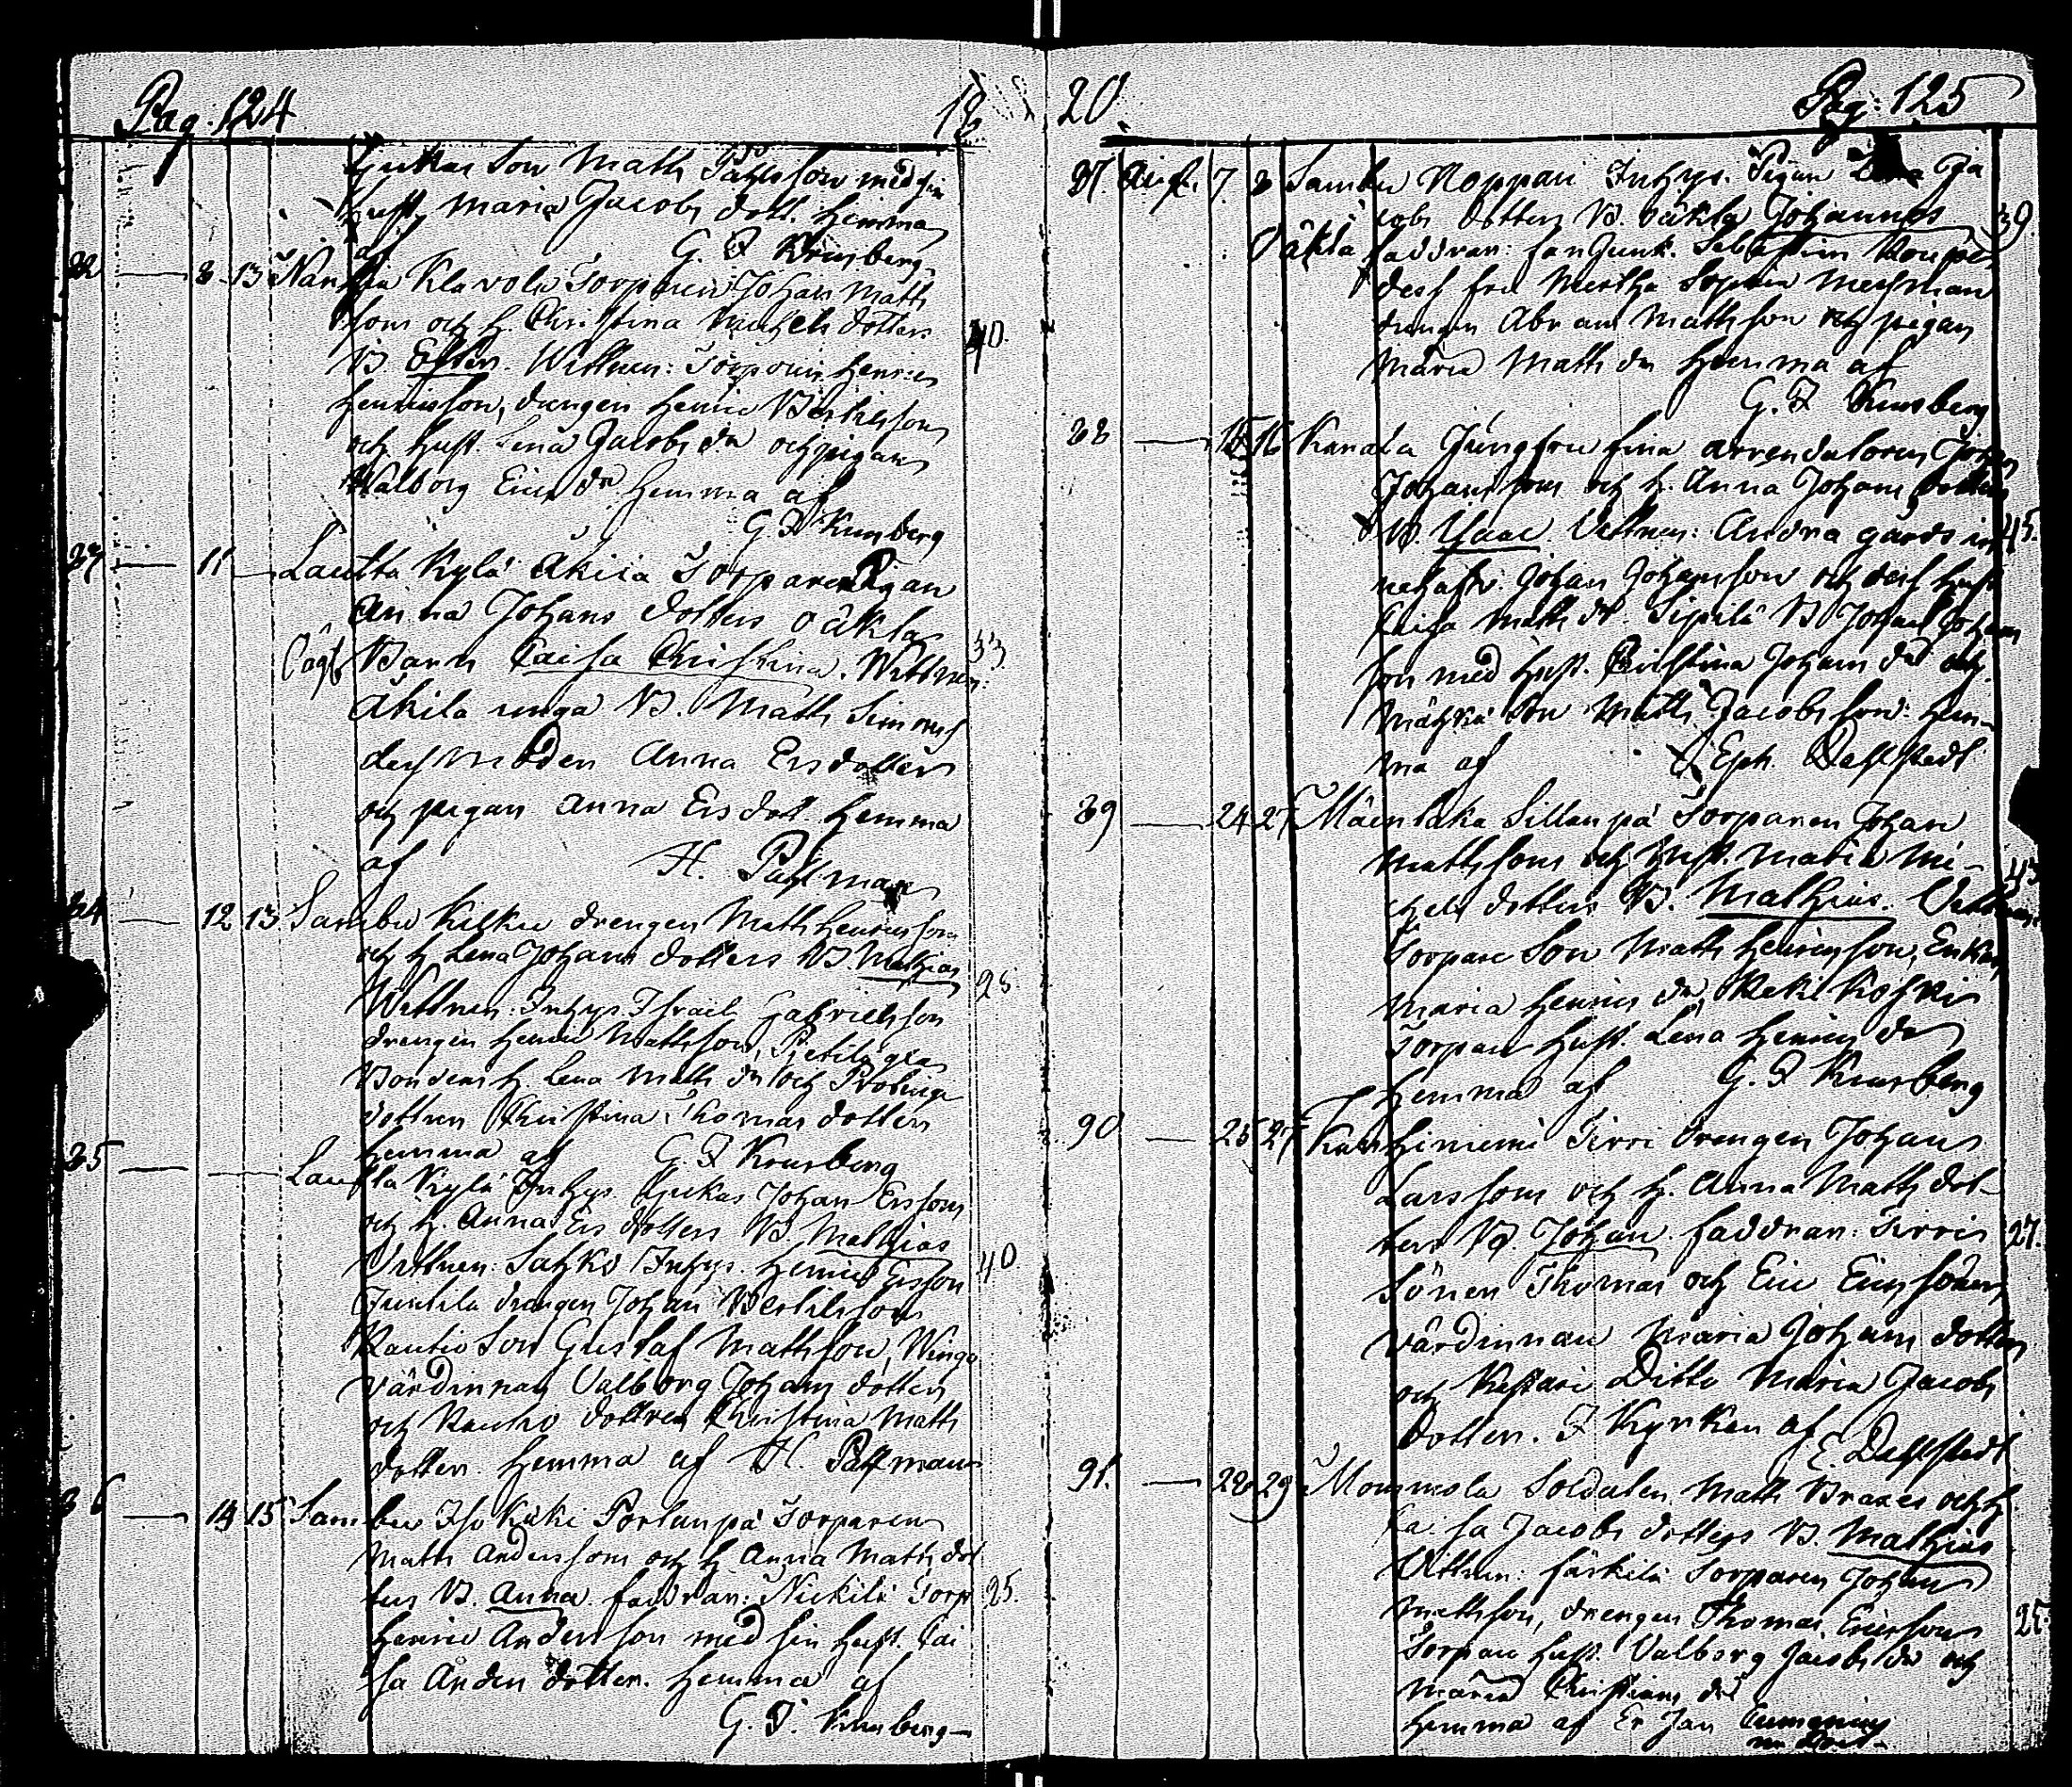 Pag. 124
18
Gukas Son Math Påhlsson med sin
Hust. Maria Jacobs dott. Hemma
af G. F Krusberg
82 — 8 13 Nanhia Klavola Torparen Johan Matts
sons och h. Christina Michels dotters 40.
B Ester. Wittnen: Torparen Henric
Henricsson, drengen Henric Bertilsson
och hust. Lena Jacobs dr och pigan
Walborg Erics dr Hemma af
G. F Krusberg
83 — 11 — Lautta Kylä Akila Torpare Pigan
Anna Johans dotters oäkta
Oägt Barn Caisa Christina. Wittnen: 33
Akila unga B. Matts Simons
dess moder Anna Ersdotter
och pigan Anna Ers dott. Hemma
af H. Påhlman
84 — 12 13 Sambu Kilku drengen Matts Henricssons
och h Lena Johans dotters B. Mathias 28
Wittnen: Inhys Israel Gabrielsson
drengen Henric Mattsson, Pietilä
Bondens h. Lena Matts dr och
dottren Christina Thomas dotter
Hemma af G. F Krusberg
85 — — Lautta Kylä Inhys. Gukas Johan Erssons
och h. Anna Ers dotters B. Mathias
Vittnen: Sahko Inhys. Henric Ersson 40
Juntila drengen Johan Bertilsson
Rautio Son Gustaf Mattsson,
värdinnan Valborg Johans dotter,
och dottren Christina Matts
dotter Hemma af H. Påhlman
86 — 14 15 Sambu Iso Kuki Portanpä Torparen
Matts Anderssons och h Anna Matts dot
ters B. Anna. faddrar: Nickilä Torp 25.
Henric Andersson med sin hust. Cai
sa Anders dotter. Hemma af
G. F. Krusberg
20.
Pag: 125
87. Aug. 7. 8 Sambu Noppari Inhys. Pigan Ja
cobs dotters B. oäkta Johannes 39.
Oäkta faddrar:
dess fru Mertha Sophia
drengen Abram Mattsson och pigan
Maria Matts dr Hemma af
G. F Krusberg
88 — 15 16 Kanala Jungfru arrendatorn Johan
Johanssons och h. Anna Johans dotters
B. Isaac Vittnen: Andra gårds in 45.
nehafv. Johan Johansson och dess hust
Caisa Matts dr. Sipilä B Johan Johans
son med hust. Christina Johans dr och
Son Matts Jacobsson: Hem-
ma af Eph Dahlstedt
89 — 24 27 Mäenlaka Sillanpä Torparen Johan
Mattssons och hust. Maria Mi- 43
chels dotters B. Mathias. Vittnen:
Torpare Son Matts Henricsson, Enkan
Maria Henrics dr, Keski
Torpare hust. Lena Henrics dr
Hemma af G. F Krusberg
90 — 25 27 Karhiniemi Tirri drengen Johan
Larssons och h. Anna Matts dot-
ters B. Johan faddrar: Tirris 27.
Sönen Thomas och Eric Ericssöner,
värdinnan Maria Johans dotter
och Ditto Maria Jacobs
dotter. I Kyrkan af
E. Dahlstedt
91. — 28 29 Mommola Soldaten Matts Braxes och h
Caisa Jacobs dotters B. Mathias
Vittnen: Särkilä Torparen Johan
Mattsson, drengen Thomas Ericsson 25.
Torpare hust. Valborg Jacobs dr och
Maria Christians dr
Hemma af Er Jan Cumenius